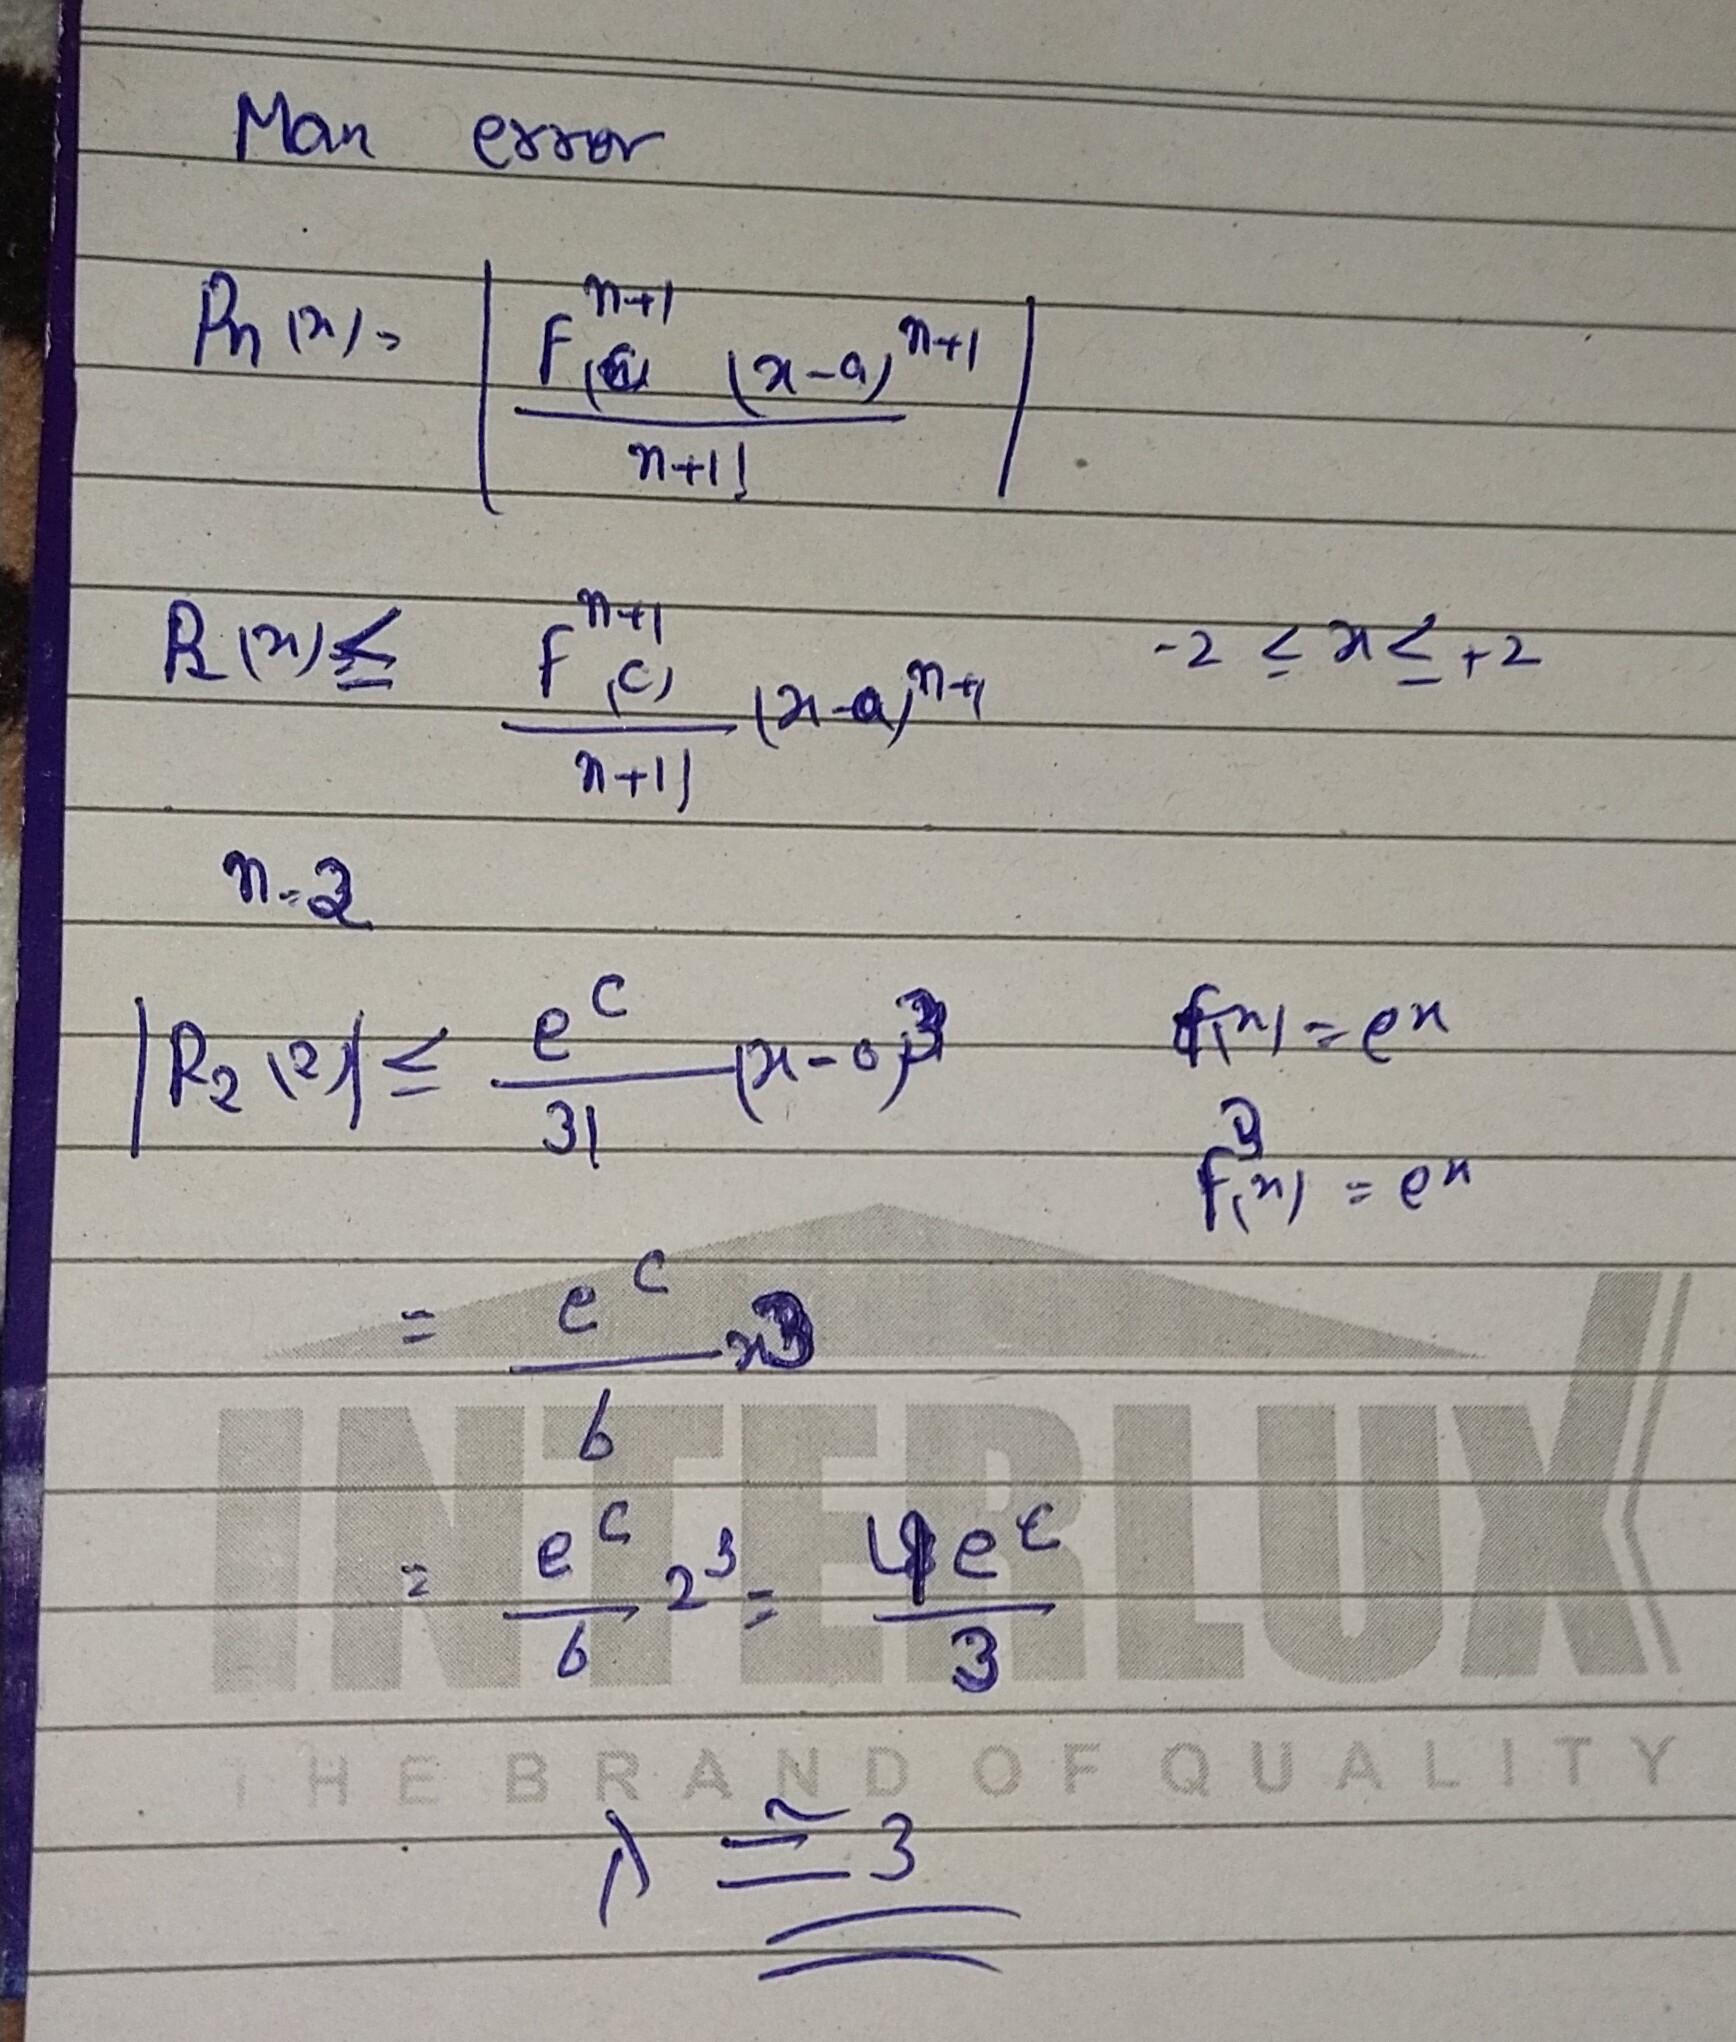 Max error
Rn(x) = | f^{n+1}(c) (x-a)^{n+1} / n+1! |
R(x) ≤ f^{n+1}(c) / n+1! (x-a)^{n+1}    -2 ≤ x ≤ +2
n=2
|R2(2)| ≤ e^c / 3! (x-0)^3    f(x) = e^x
f^3(x) = e^x
= e^c / 6 x^3
= e^c / 6 2^3 = 4e^c / 3
INTERLUX
THE BRAND OF QUALITY
λ ≅ 3